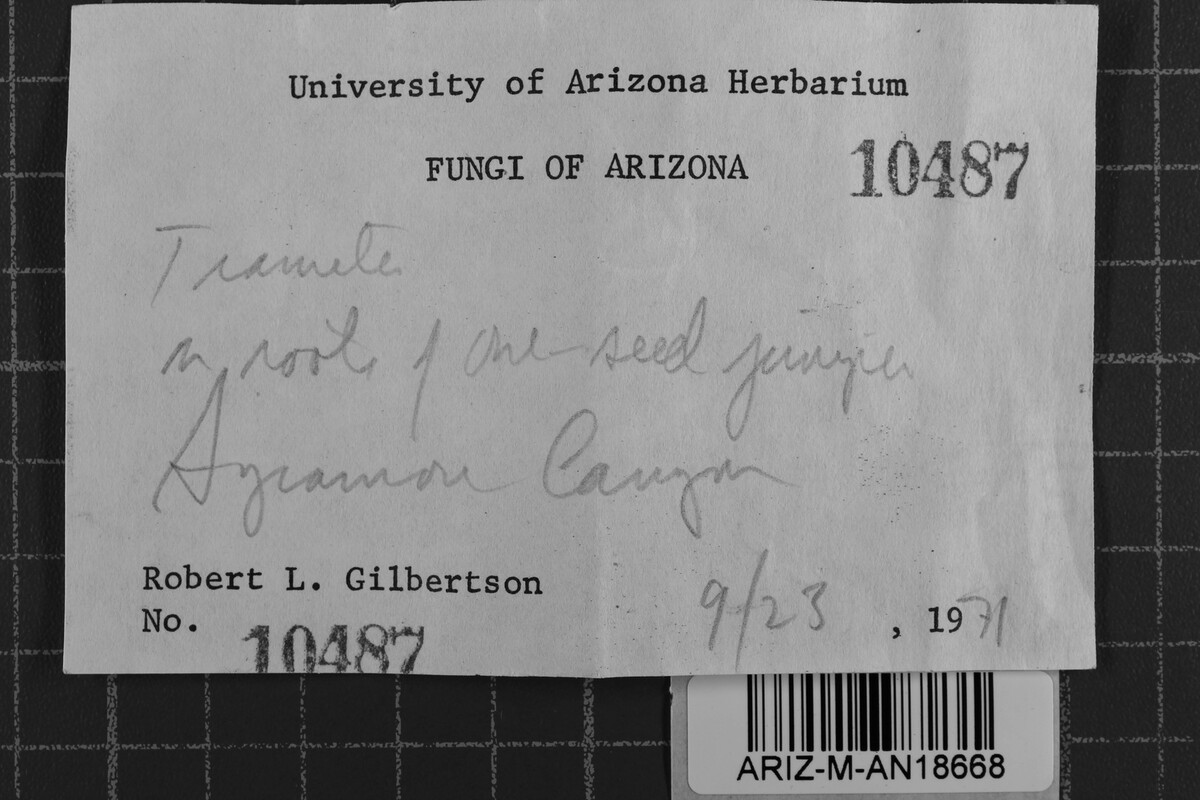 University of Arizona Herbarium
FUNGI OF ARIZONA
10487
Trametes
on roots of one-seed juniper
Sycamore Canyon
Robert L. Gilbertson
9/23, 1971
No. 10487
ARIZ-M-AN18668